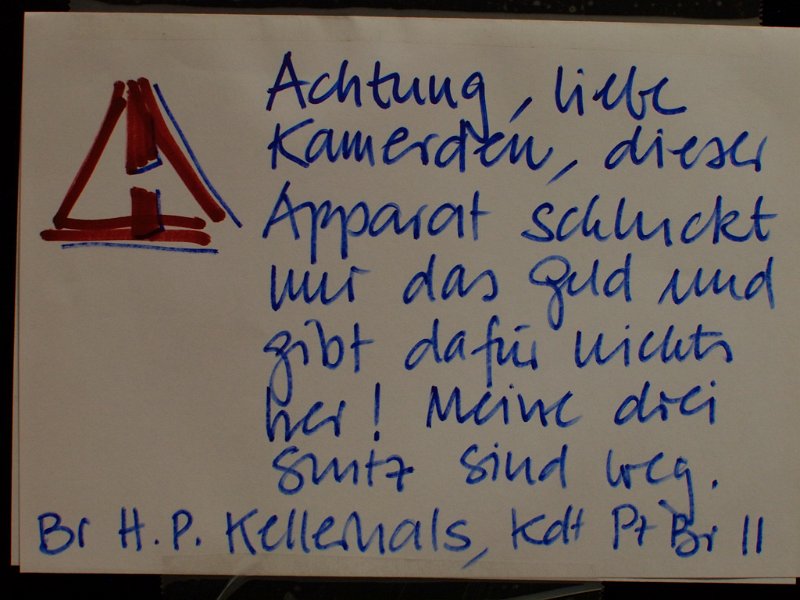 Achtung, liebe
Kamerden, dieser
Apparat schluckt
nur das Geld und
gibt dafür nichts
her! Meine drei
Stutz sind weg.
Br H.P. Kellerhals, Kdt Pz Br 11